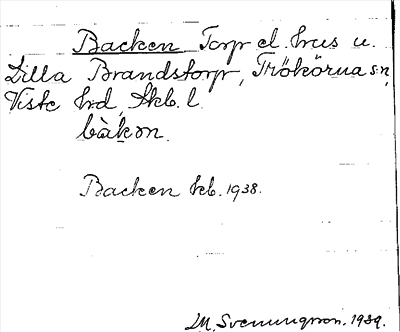 Backen Torp el. hus u.
Lilla Brandstorp, Trökörna sn,
Viste hd, Skb. l.
bàkən.
Backen kb. 1938.
M. Svenungsson. 1939.